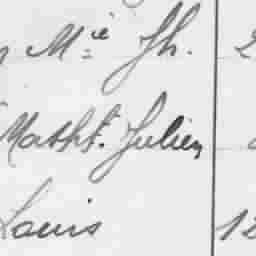 Mie Jh. 2
Matht. Julien
Louis 12